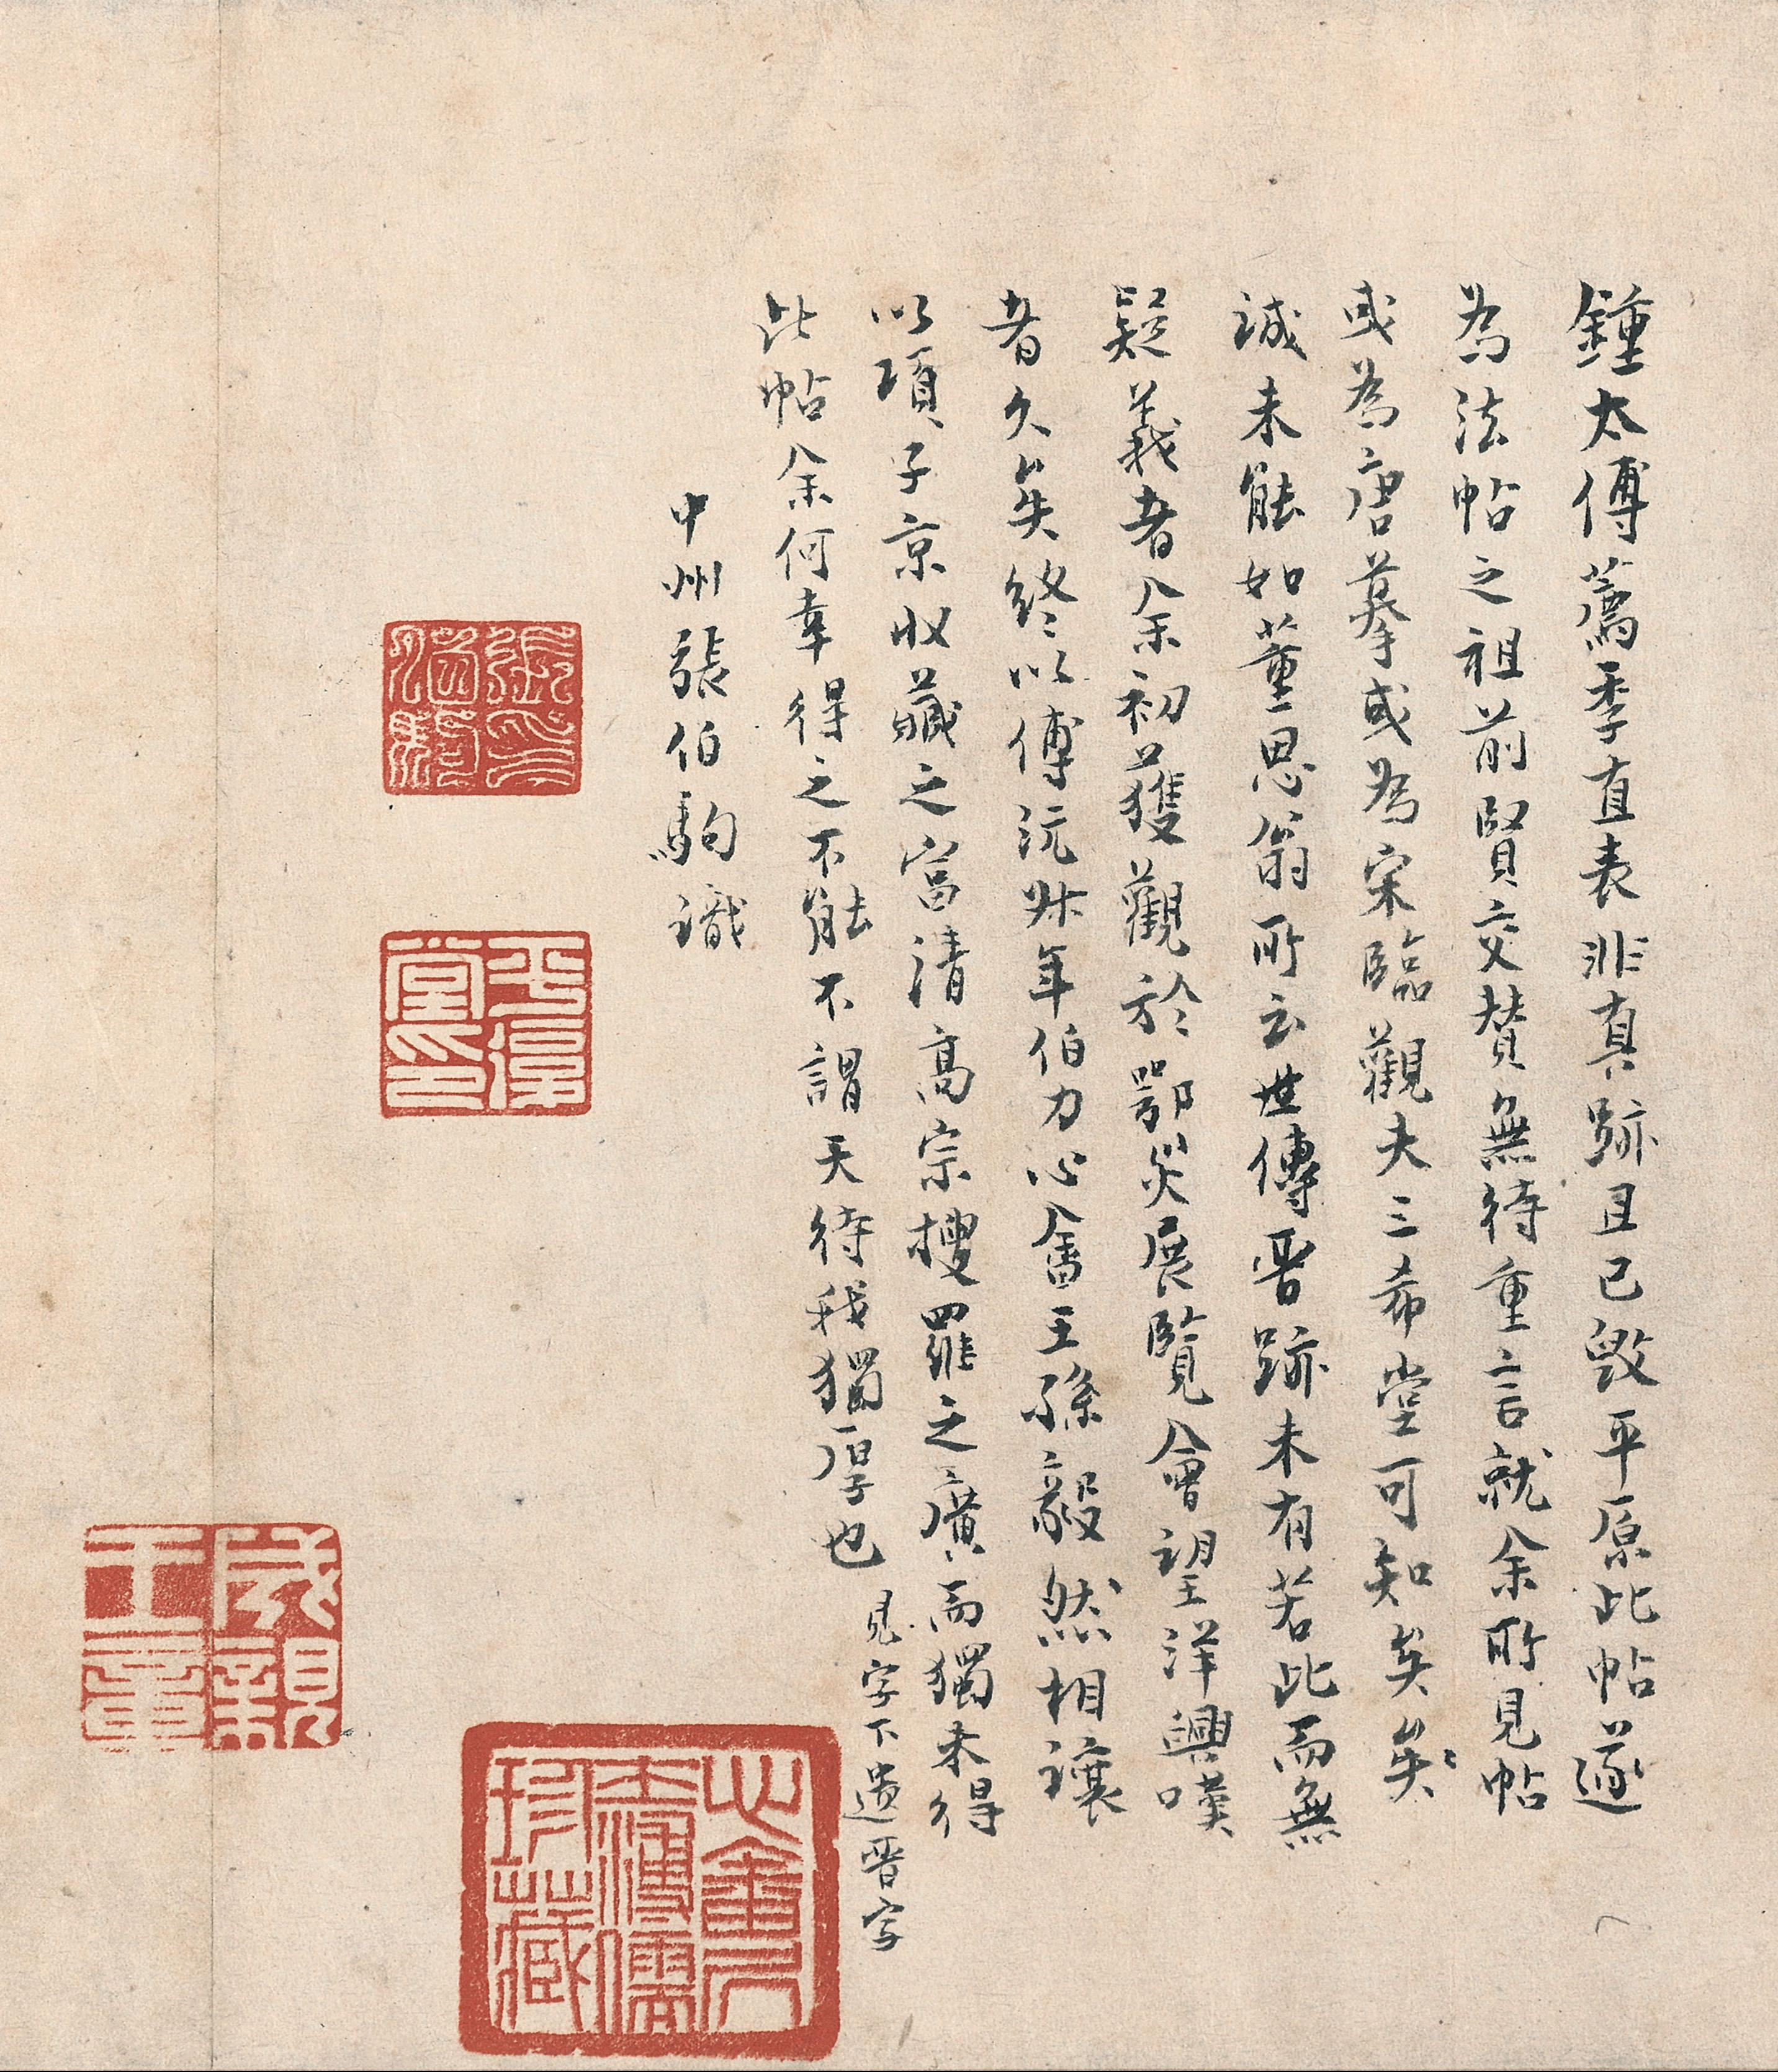 鍾太傅薦季直表非真跡且已毀平原此帖遂
為法帖之祖前賢交贊無待重言就余所見帖
或為唐摹或為宋臨觀夫三希堂可知矣矣
誠未能如董思翁所云世傳晋跡未有若此而無
疑義者余初獲觀於鄂災展覽會望洋興嘆
者久矣終以傅沅叔年伯力心畬王孫毅然相讓
以項子京收藏之富清高宗搜羅之廣而獨未得
此帖余何幸得之不能不謂天待我獨厚也
見字下遺晋字
中州張伯駒識
張印伯駒
平復堂印
成親王章
心畬居士溥儒珍藏